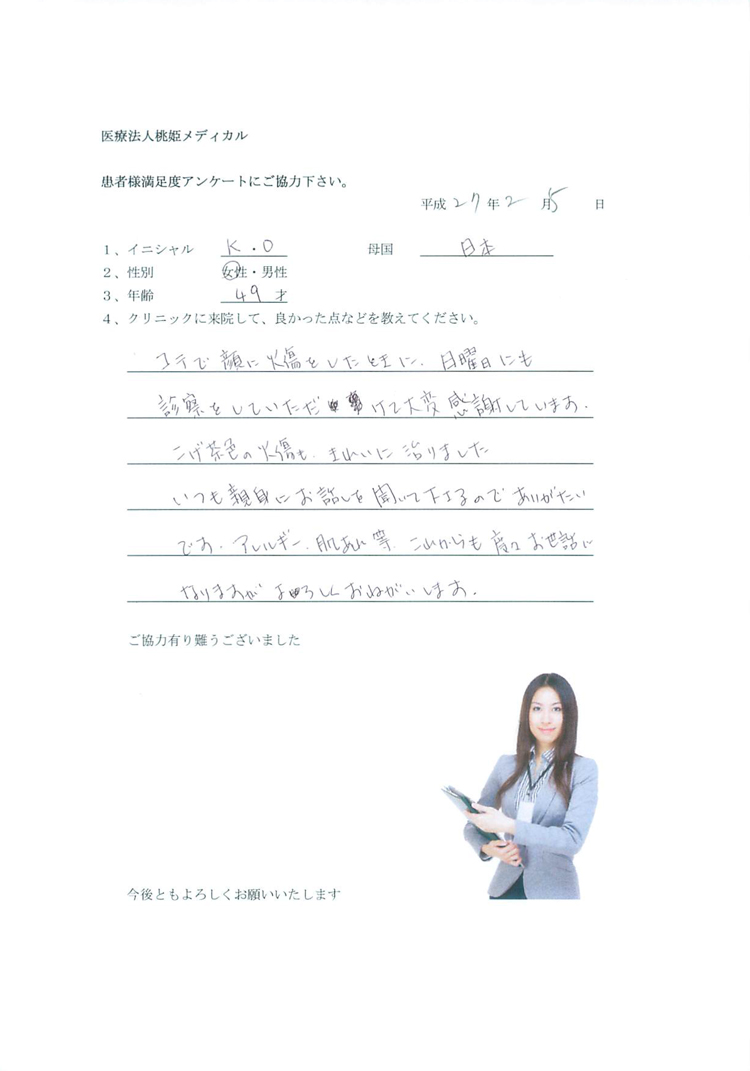 医療法人桃姫メディカル
患者様満足度アンケートにご協力下さい。
平成 27 年 2 月 5 日
1、イニシャル K・O 母国 日本
2、性別 女性・男性
3、年齢 49 才
4、クリニックに来院して、良かった点などを教えてください。
コテで顔に火傷をしたときに、日曜日にも
診察をしていただけて大変感謝しています。
こげ茶色の火傷も、きれいに治りました
いつも親身にお話しを聞いて下さるのでありがたい
です。アレルギー、肌あれ等、これからも度々お世話に
なりますがよろしくおねがいします。
ご協力有り難うございました
今後ともよろしくお願いいたします